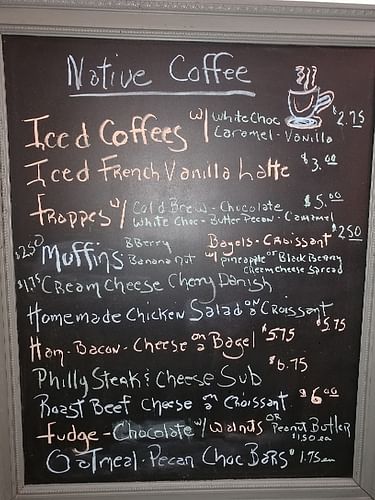 Native Coffee
Iced Coffees w/ White Choc $2.75
Caramel - Vanilla
Iced French Vanilla Latte $3.00
Frappes w/ Cold Brew - Chocolate $5.00
White Choc - Butter Pecan - Caramel
$2.50 Muffins BBerry Bagels - Croissant $2.50
Banana nut w/ pineapple or Black Berry
Cream cheese spread
$1.75 Cream Cheese Cherry Danish
Homemade Chicken Salad on a Croissant
$5.75
Ham - Bacon - Cheese on a Bagel $5.75
$6.75
Philly Steak & Cheese Sub
Roast Beef Cheese on a Croissant $6.00
Fudge - Chocolate w/ Walnuts or Peanut Butler
$1.50 ea
Oatmeal - Pecan Choc Bars $1.75 ea